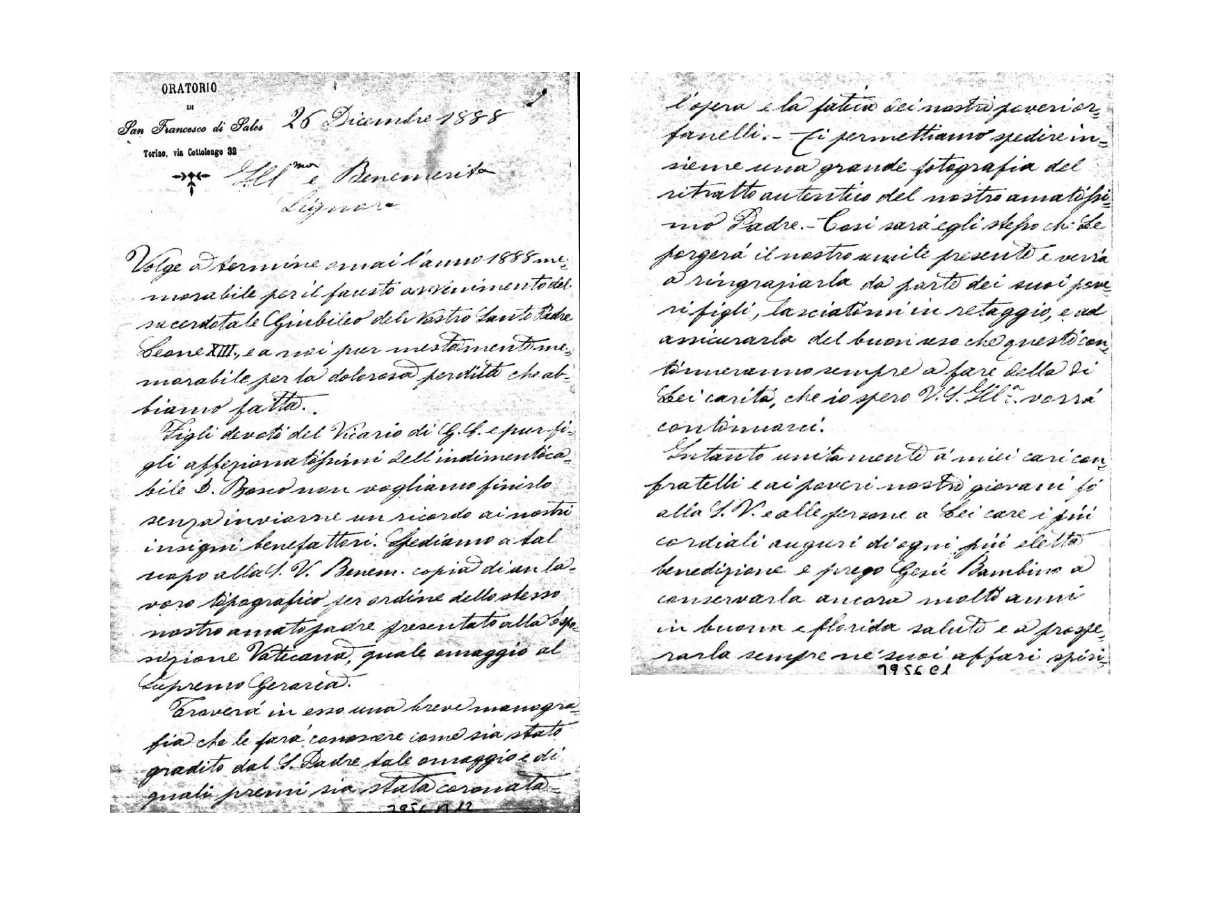 ORATORIO
DI
San Francesco di Sales
Torino, via Cottolengo 32
26 Dicembre 1888
Ill.mo e Benemerito
Signore
Volge a termine omai l'anno 1888 me=
morabile per il fausto avvenimento del
sacerdotale Giubileo del Nostro Santo Padre
Leone XIII., e a noi pur mestamente me=
morabile per la dolorosa perdita che ab=
biamo fatta.
Figli devoti del Vicario di G. C. e pur fi=
gli affezionatissimi dell'indimentica=
bile D. Bosco non vogliamo finirlo
senza inviarne un ricordo ai nostri
insigni benefattori. Spediamo a tal
scopo alla S. V. Benem. copia di un la=
voro tipografico per ordine dello stesso
nostro amato padre presentato alla Espo=
sizione Vaticana, quale omaggio al
Supremo Gerarca.
Troverà in esso una breve monogra=
fia che le farà conoscere come sia stato
gradito dal S. Padre tale omaggio e di
quali premi sia stata coronata=
l'opera e la fatica dei nostri poveri or=
fanelli. - Ci permettiamo spedire in=
sieme una grande fotografia del
ritratto autentico del nostro amatissi=
mo Padre. - Così sarà egli stesso che Le
porgerà il nostro umile presente e verrà
a ringraziarla da parte dei suoi pove=
ri figli, lasciatimi in retaggio, e ad
assicurarla del buon uso che questi con=
tinueranno sempre a fare della di
Lei carità, che io spero V. S. Ill.a vorrà
continuarci.
Intanto unitamente a' miei cari con=
fratelli e ai poveri nostri giovani fo
alla S. V. e alle persone a Lei care i più
cordiali auguri di ogni più eletta
benedizione e prego Gesù Bambino a
conservarla ancora molti anni
in buona e florida salute e a prospe=
rarla sempre ne' suoi affari spiri=